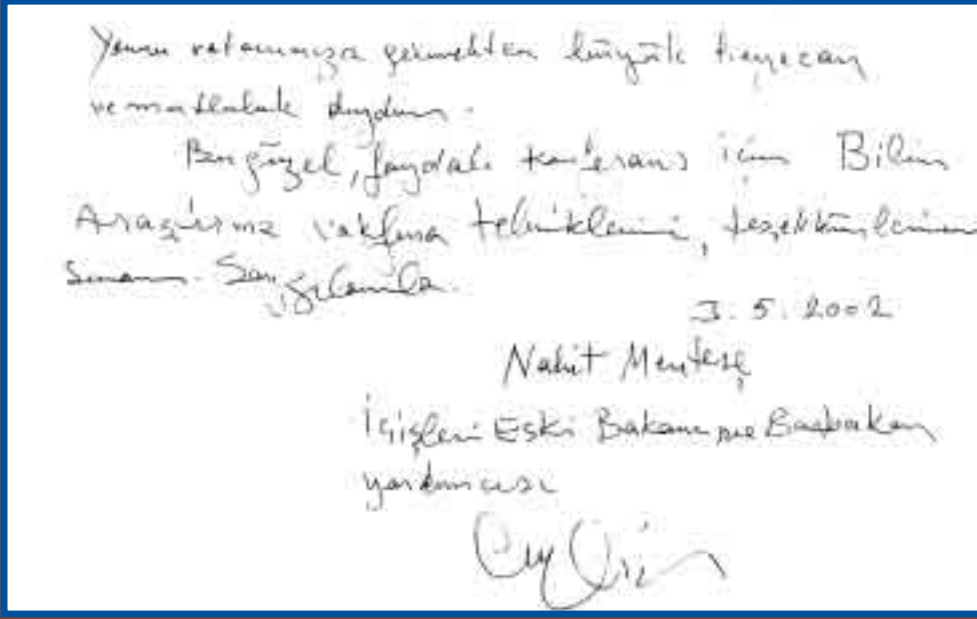 Yavru vatanımıza gelmekten büyük heyecan
ve mutluluk duydum.
Bu güzel, faydalı konferans için Bilim
Araştırma Vakfına tebriklerimi, teşekkürlerimi
sunarım. Saygılarımla.
3.5.2002
Nahit Menteşe
İçişleri Eski Bakanı ve Başbakan
yardımcısı